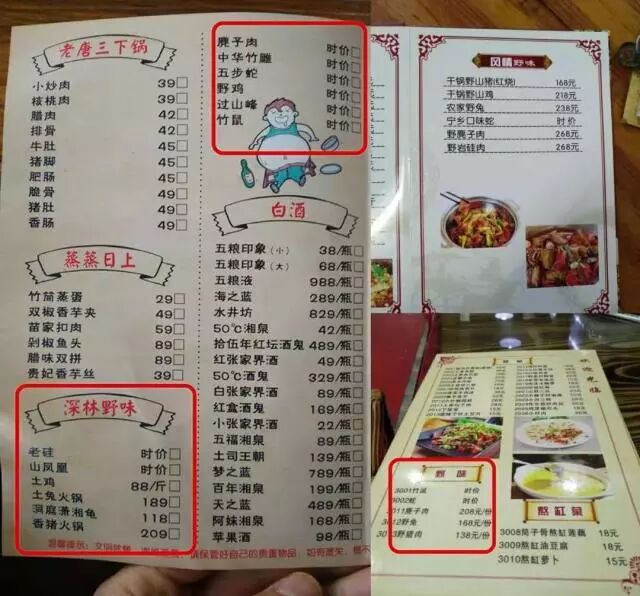 老唐三下锅
小炒肉 39
核桃肉 39
腊肉 42
排骨 42
牛肚 45
猪脚 45
肥肠 45
脆骨 49
猪肚 49
香肠 49
蒸蒸日上
竹筒蒸蛋 29
双椒香芋夹 49
苗家扣肉 59
剁椒鱼头 89
腊味双拼 89
贵妃香芋丝
深林野味
老硅 时价
山凤凰 时价
土鸡 88/斤
土兔火锅 189
洞庭潇湘龟 118
香猪火锅 209
麂子肉 时价
中华竹雕 时价
五步蛇 时价
野鸡 时价
过山峰 时价
竹鼠 时价
白酒
五粮印象(小) 38/瓶
五粮印象(大) 68/瓶
五粮液 988/瓶
海之蓝 289/瓶
水井坊 829/瓶
50℃湘泉 42/瓶
拾伍年红坛酒鬼 489/瓶
红张家界酒 89/瓶
50℃酒鬼 329/瓶
白张家界酒 69/瓶
红盒酒鬼 469/瓶
小张家界酒 22/瓶
五福湘泉 89/瓶
土司王朝 139/瓶
梦之蓝 789/瓶
百年湘泉 289/瓶
天之蓝 489/瓶
阿妹湘泉 189/瓶
苹果酒 98/瓶
风情野味
干锅野山猪(红烧) 168元
干锅野山鸡 218元
农家野兔 238元
宁乡口味蛇 时价
野麂子肉 268元
野岩硅肉 268元
欢迎光临
野味
3001竹鼠 时价
3002蛇 时价
3011麂子肉 208元/份
3012野兔 168元/份
3013野猪肉 138元/份
熬缸菜
3008筒子骨熬缸莲藕 18元
3009熬缸油豆腐 18元
3010熬缸萝卜 15元